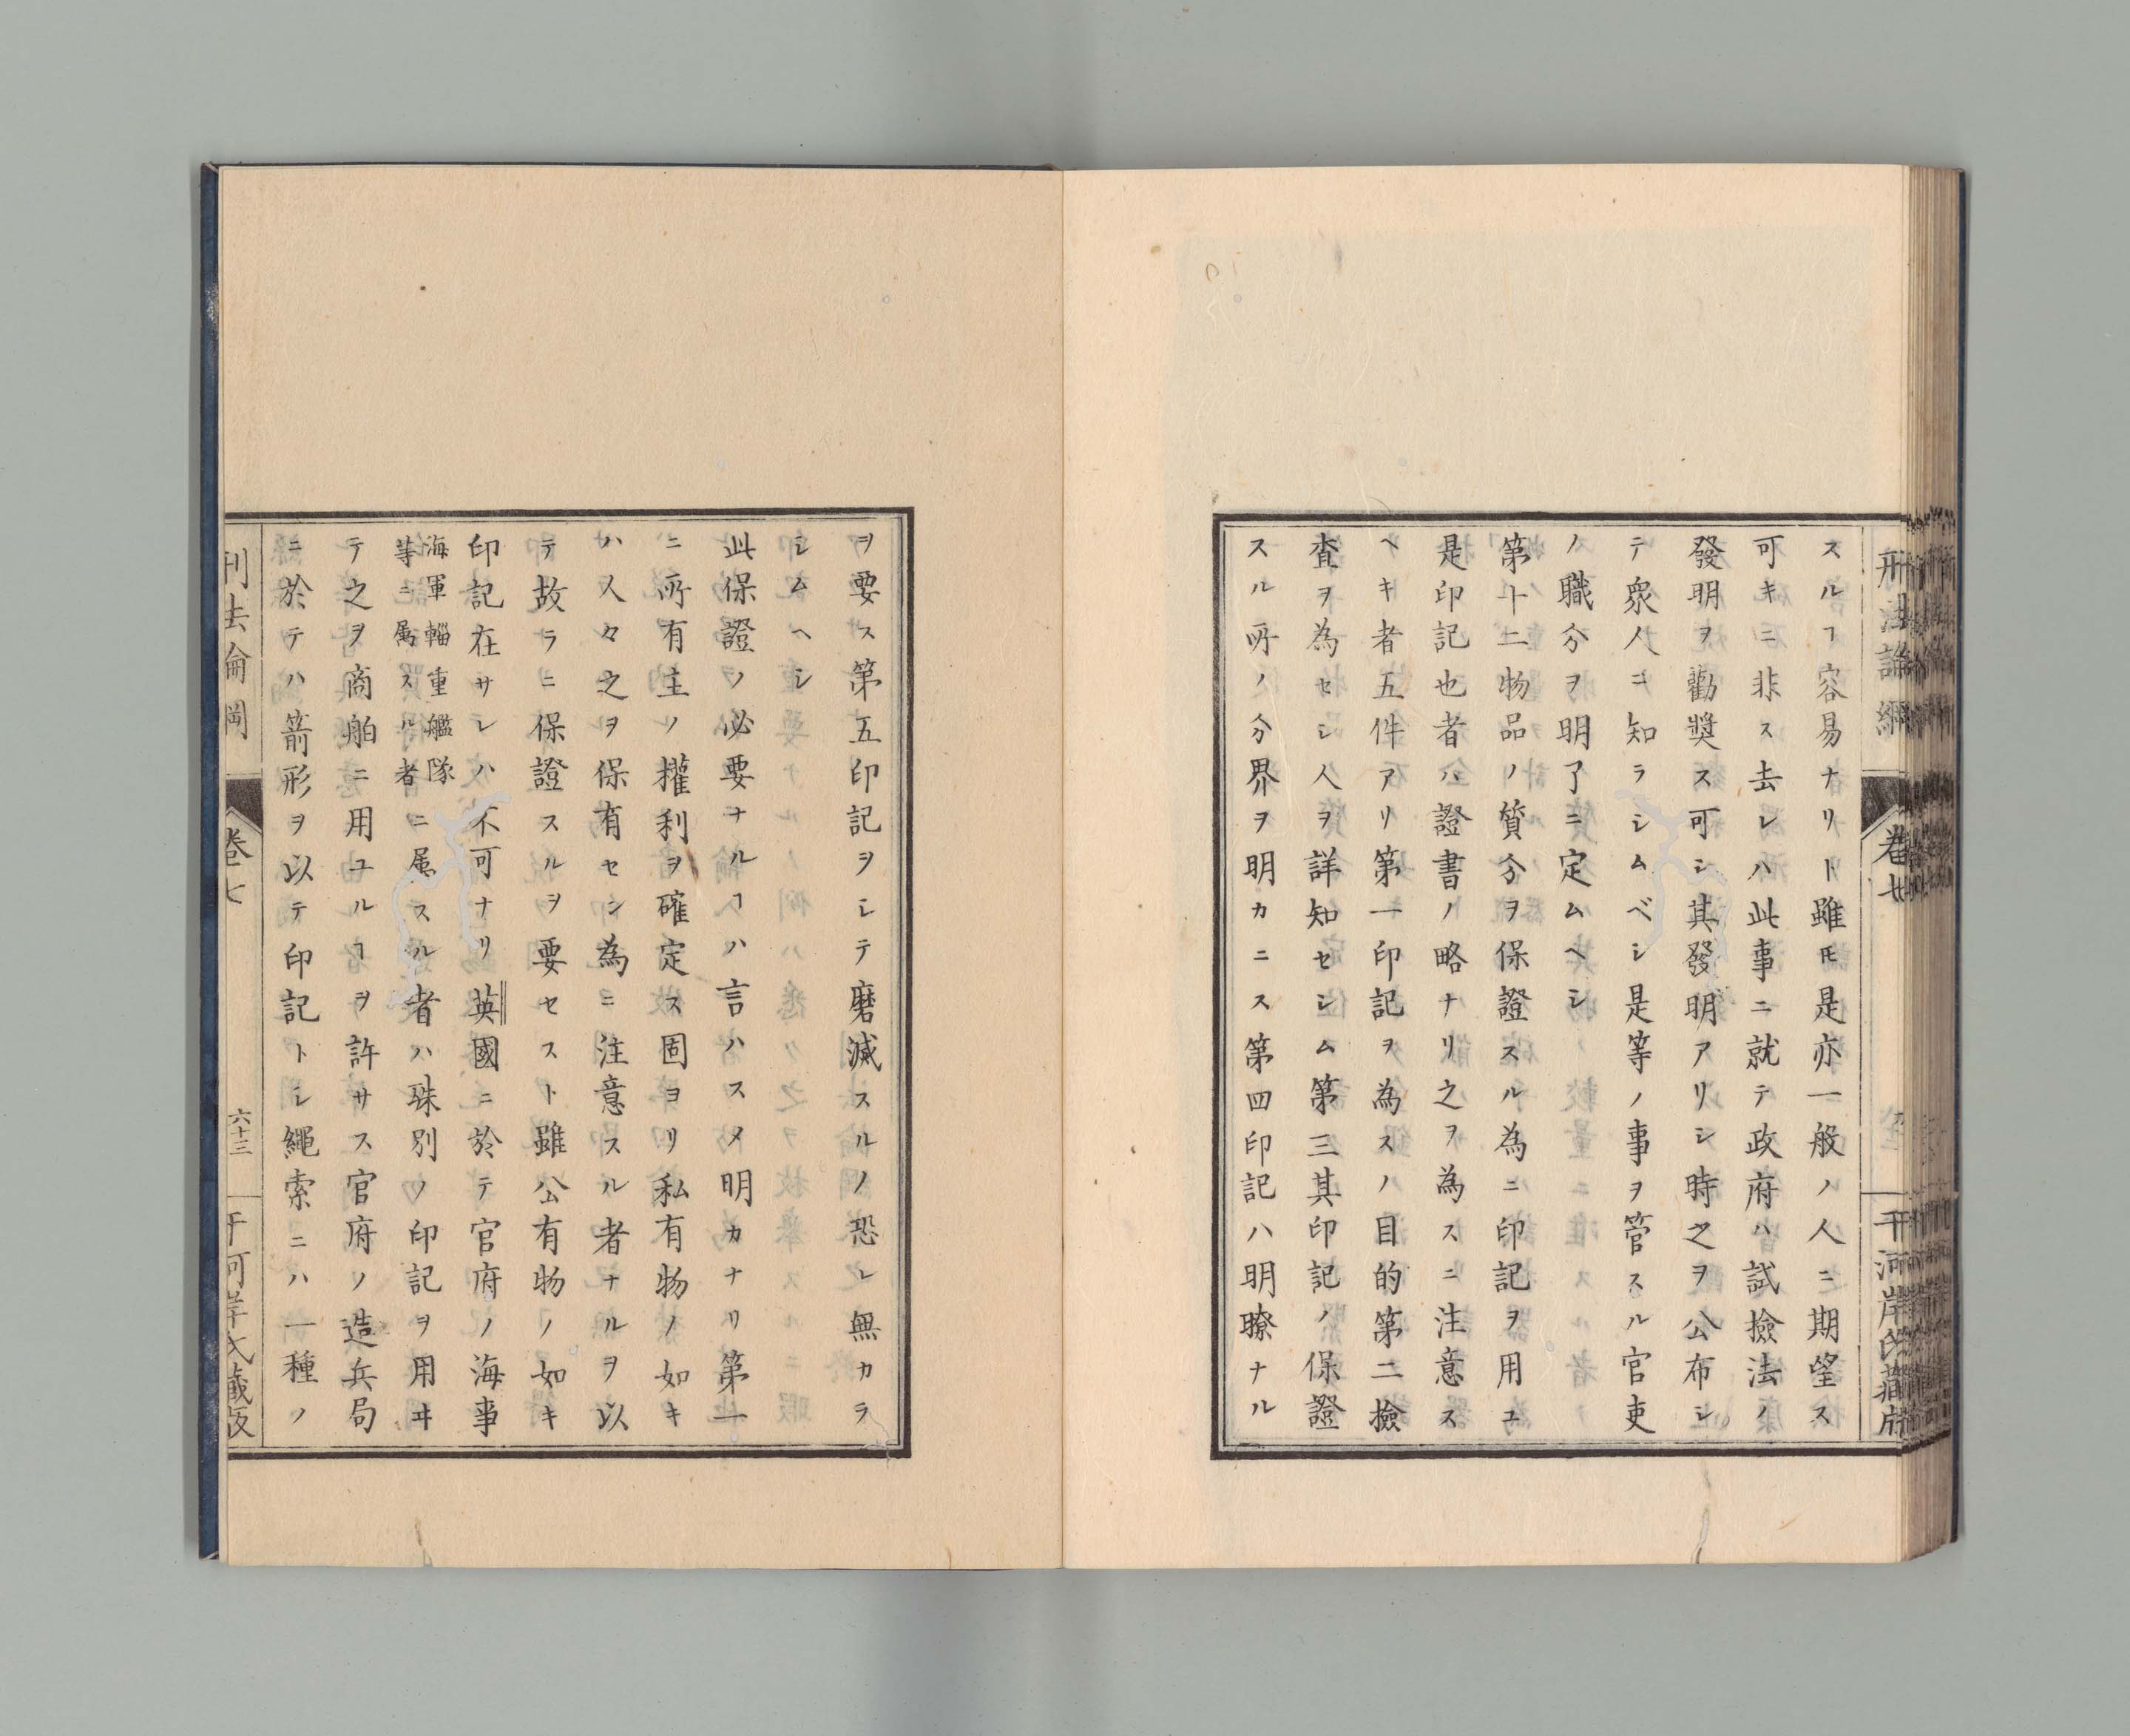 スルヿ容易ナリト雖モ是亦一般ノ人ニ期望ス
可キニ非ス去レハ此事ニ就テ政府ハ試撿法ノ
發明ヲ勸奬ス可シ其發明アリシ時之ヲ公布シ
テ衆人ニ知ラシムベシ是等ノ事ヲ管スル官吏
ノ職分ヲ明了ニ定ムヘシ
第十二物品ノ質分ヲ保證スル為ニ印記ヲ用ユ
是印記也者ハ證書ノ略ナリ之ヲ為スニ注意ス
ヘキ者五件アリ第一印記ヲ為スノ目的第二撿
査ヲ為セシ人ヲ詳知セシム第三其印記ノ保證
スル所ノ分界ヲ明カニス第四印記ハ明瞭ナル
ヲ要ス第五印記ヲシテ磨滅スルノ恐レ無カラ
シムヘシ
此保證ノ必要ナルヿハ言ハスメ明カナリ第一
ニ所有主ノ權利ヲ確定ス固ヨリ私有物ノ如キ
ハ人々之ヲ保有セシ為ニ注意スル者ナルヲ以
テ故ラニ保證スルヲ要セスト雖公有物ノ如キ
印記在サレハ不可ナリ英國ニ於テ官府ノ海事
海軍輜重艦隊
等ニ属スル者
ニ属スル者ハ殊別ノ印記ヲ用ヰ
テ之ヲ商舶ニ用ユルヿヲ許サス官府ノ造兵局
ニ於テハ箭形ヲ以テ印記トシ繩索ニハ一種ノ
刑法論綱
卷七
六十三
干河岸氏藏版